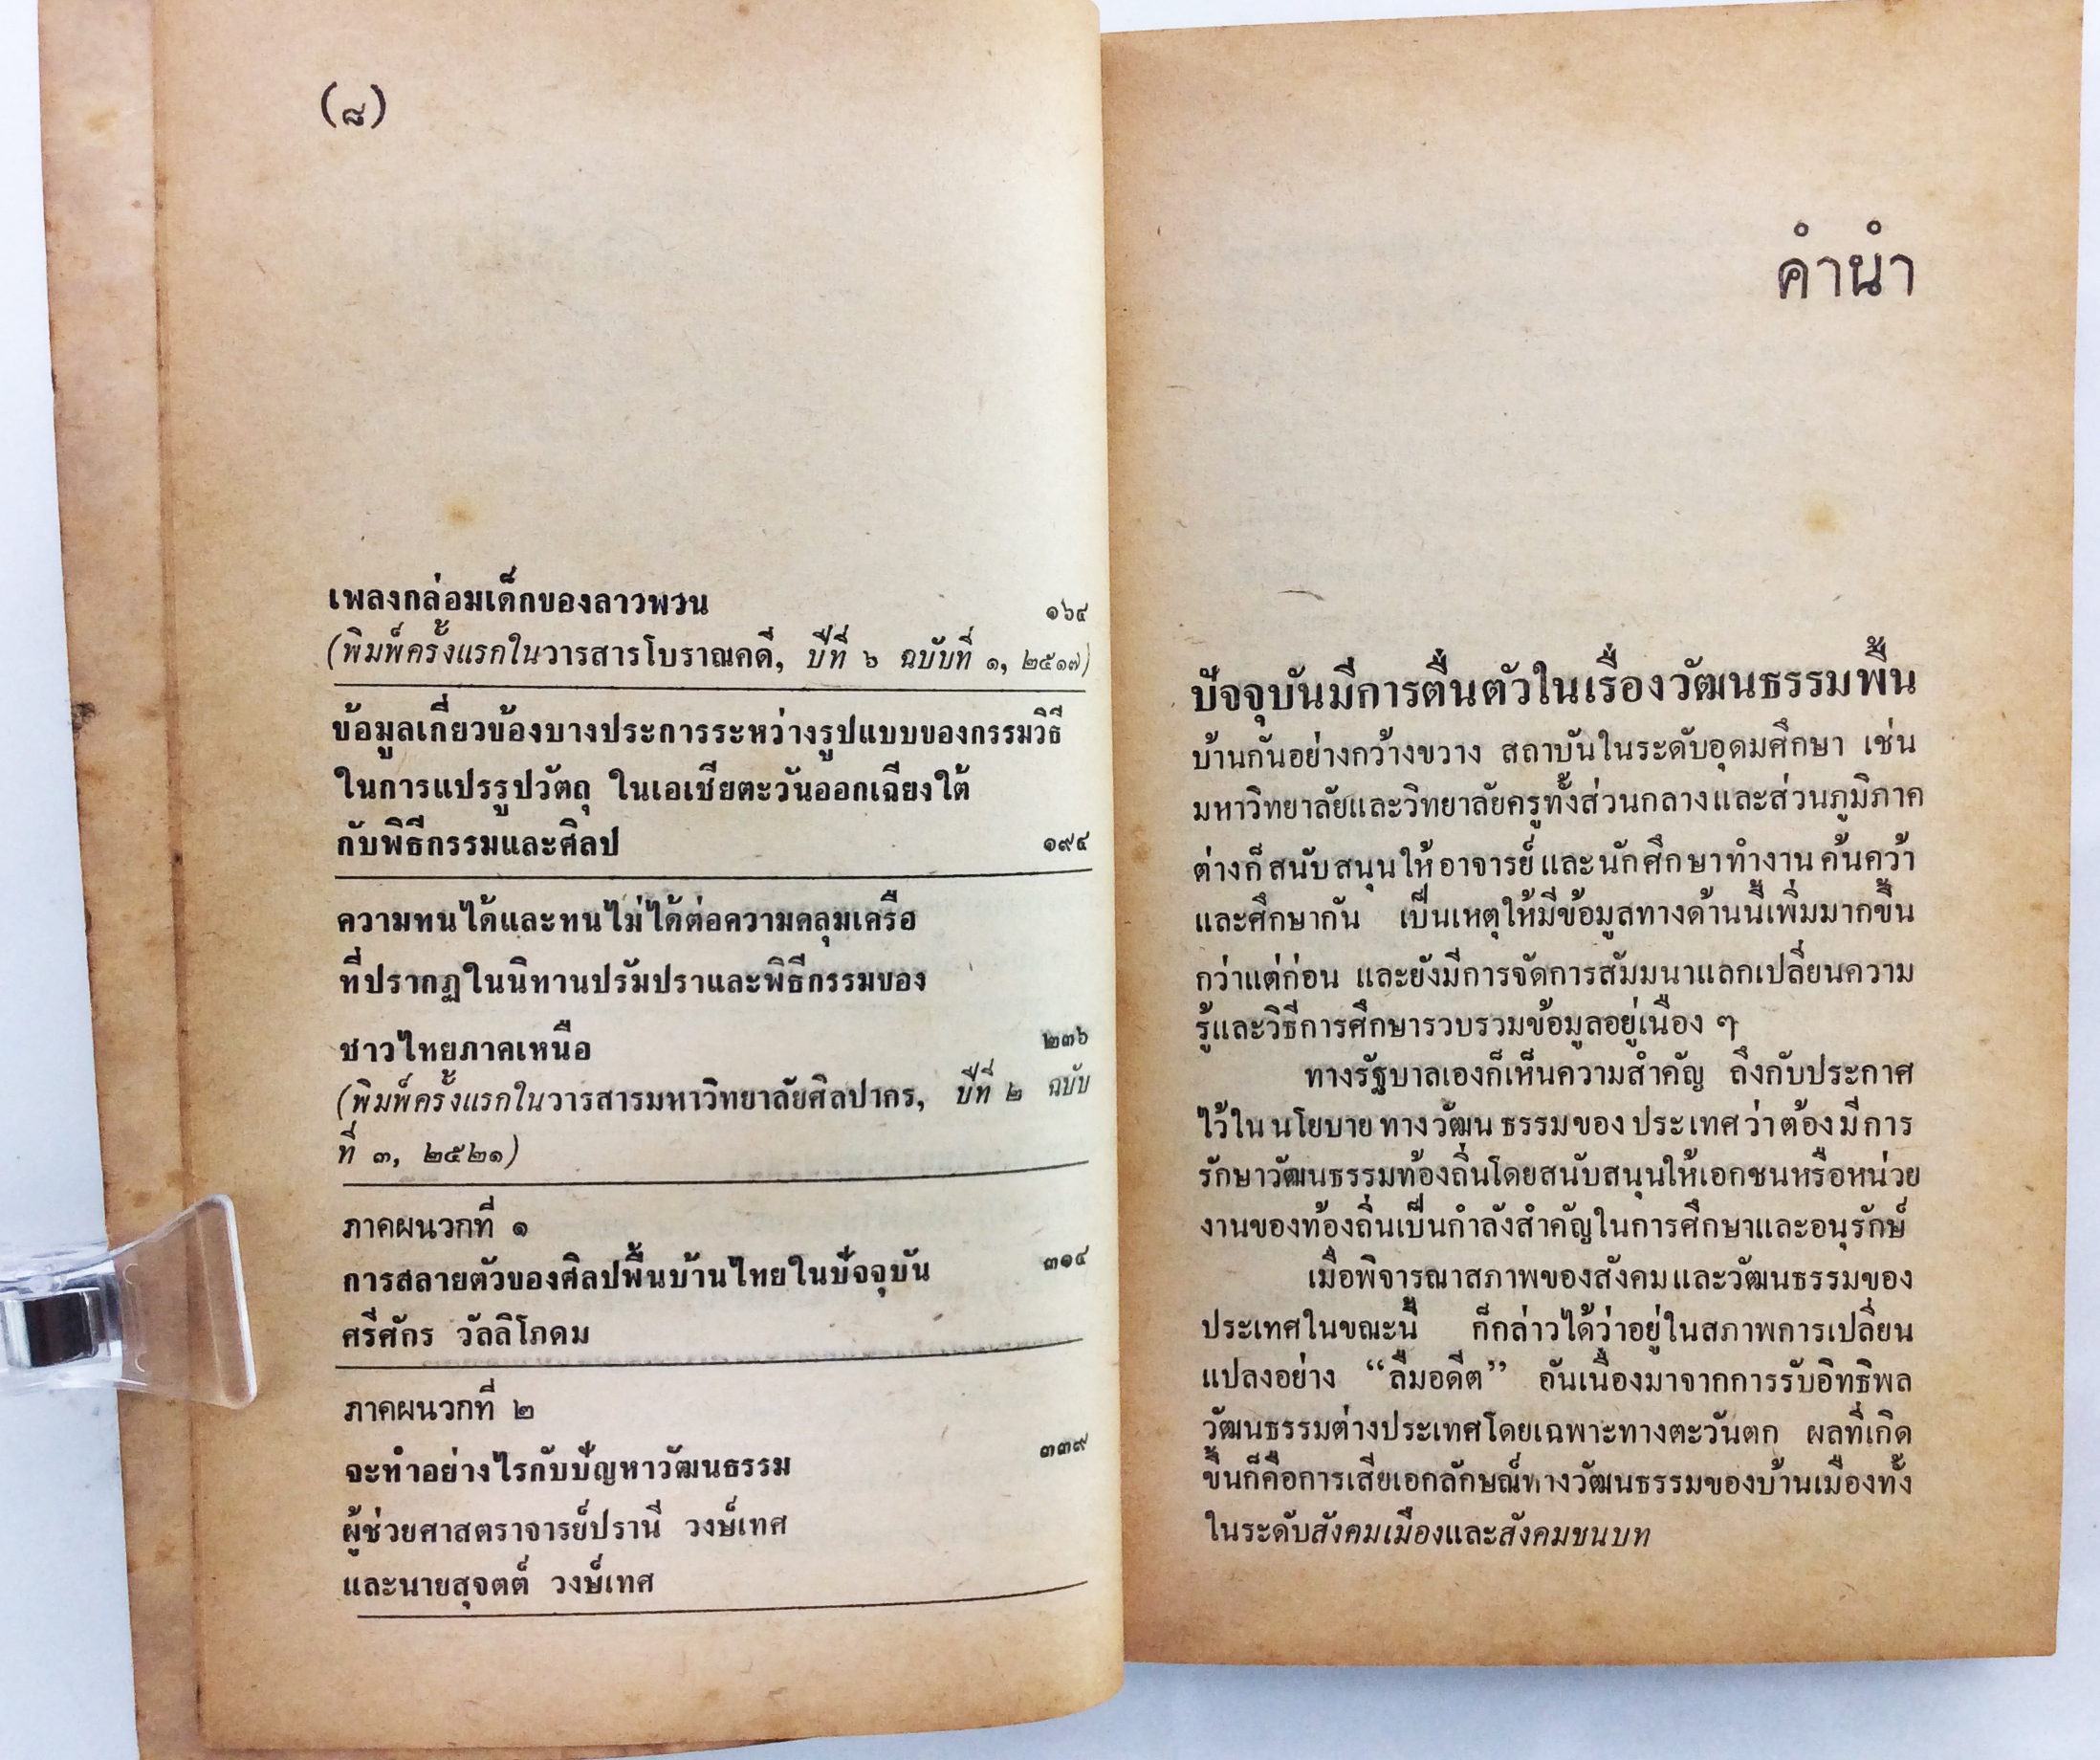 (๘)
เพลงกล่อมเด็กของลาวพวน ๑๖๔
(พิมพ์ครั้งแรกในวารสารโบราณคดี, ปีที่ ๖ ฉบับที่ ๑, ๒๕๑๗)
ข้อมูลเกี่ยวข้องบางประการระหว่างรูปแบบของกรรมวิธี
ในการแปรรูปวัตถุ ในเอเชียตะวันออกเฉียงใต้
กับพิธีกรรมและศิลป ๑๙๔
ความทนได้และทนไม่ได้ต่อความคลุมเครือ
ที่ปรากฏในนิทานปรัมปราและพิธีกรรมของ
ชาวไทยภาคเหนือ ๒๓๖
(พิมพ์ครั้งแรกในวารสารมหาวิทยาลัยศิลปากร, ปีที่ ๒ ฉบับ
ที่ ๓, ๒๕๒๑)
ภาคผนวกที่ ๑
การสลายตัวของศิลปพื้นบ้านไทยในปัจจุบัน ๓๑๔
ศรีศักร วัลลิโภดม
ภาคผนวกที่ ๒
จะทำอย่างไรกับปัญหาวัฒนธรรม ๓๓๙
ผู้ช่วยศาสตราจารย์ปรานี วงษ์เทศ
และนายสุจตต์ วงษ์เทศ
คำนำ
ปัจจุบันมีการตื่นตัวในเรื่องวัฒนธรรมพื้น
บ้านกันอย่างกว้างขวาง สถาบันในระดับอุดมศึกษา เช่น
มหาวิทยาลัยและวิทยาลัยครูทั้งส่วนกลางและส่วนภูมิภาค
ต่างก็สนับสนุนให้อาจารย์และนักศึกษาทำงานค้นคว้า
และศึกษากัน เป็นเหตุให้มีข้อมูลทางด้านนี้เพิ่มมากขึ้น
กว่าแต่ก่อน และยังมีการจัดการสัมมนาแลกเปลี่ยนความ
รู้และวิธีการศึกษารวบรวมข้อมูลอยู่เนือง ๆ
ทางรัฐบาลเองก็เห็นความสำคัญ ถึงกับประกาศ
ไว้ในนโยบายทางวัฒนธรรมของประเทศว่าต้องมีการ
รักษาวัฒนธรรมท้องถิ่นโดยสนับสนุนให้เอกชนหรือหน่วย
งานของท้องถิ่นเป็นกำลังสำคัญในการศึกษาและอนุรักษ์
เมื่อพิจารณาสภาพของสังคมและวัฒนธรรมของ
ประเทศในขณะนี้ ก็กล่าวได้ว่าอยู่ในสภาพการเปลี่ยน
แปลงอย่าง “ลืมอดีต” อันเนื่องมาจากการรับอิทธิพล
วัฒนธรรมต่างประเทศโดยเฉพาะทางตะวันตก ผลที่เกิด
ขึ้นก็คือการเสียเอกลักษณ์ทางวัฒนธรรมของบ้านเมืองทั้ง
ในระดับสังคมเมืองและสังคมชนบท